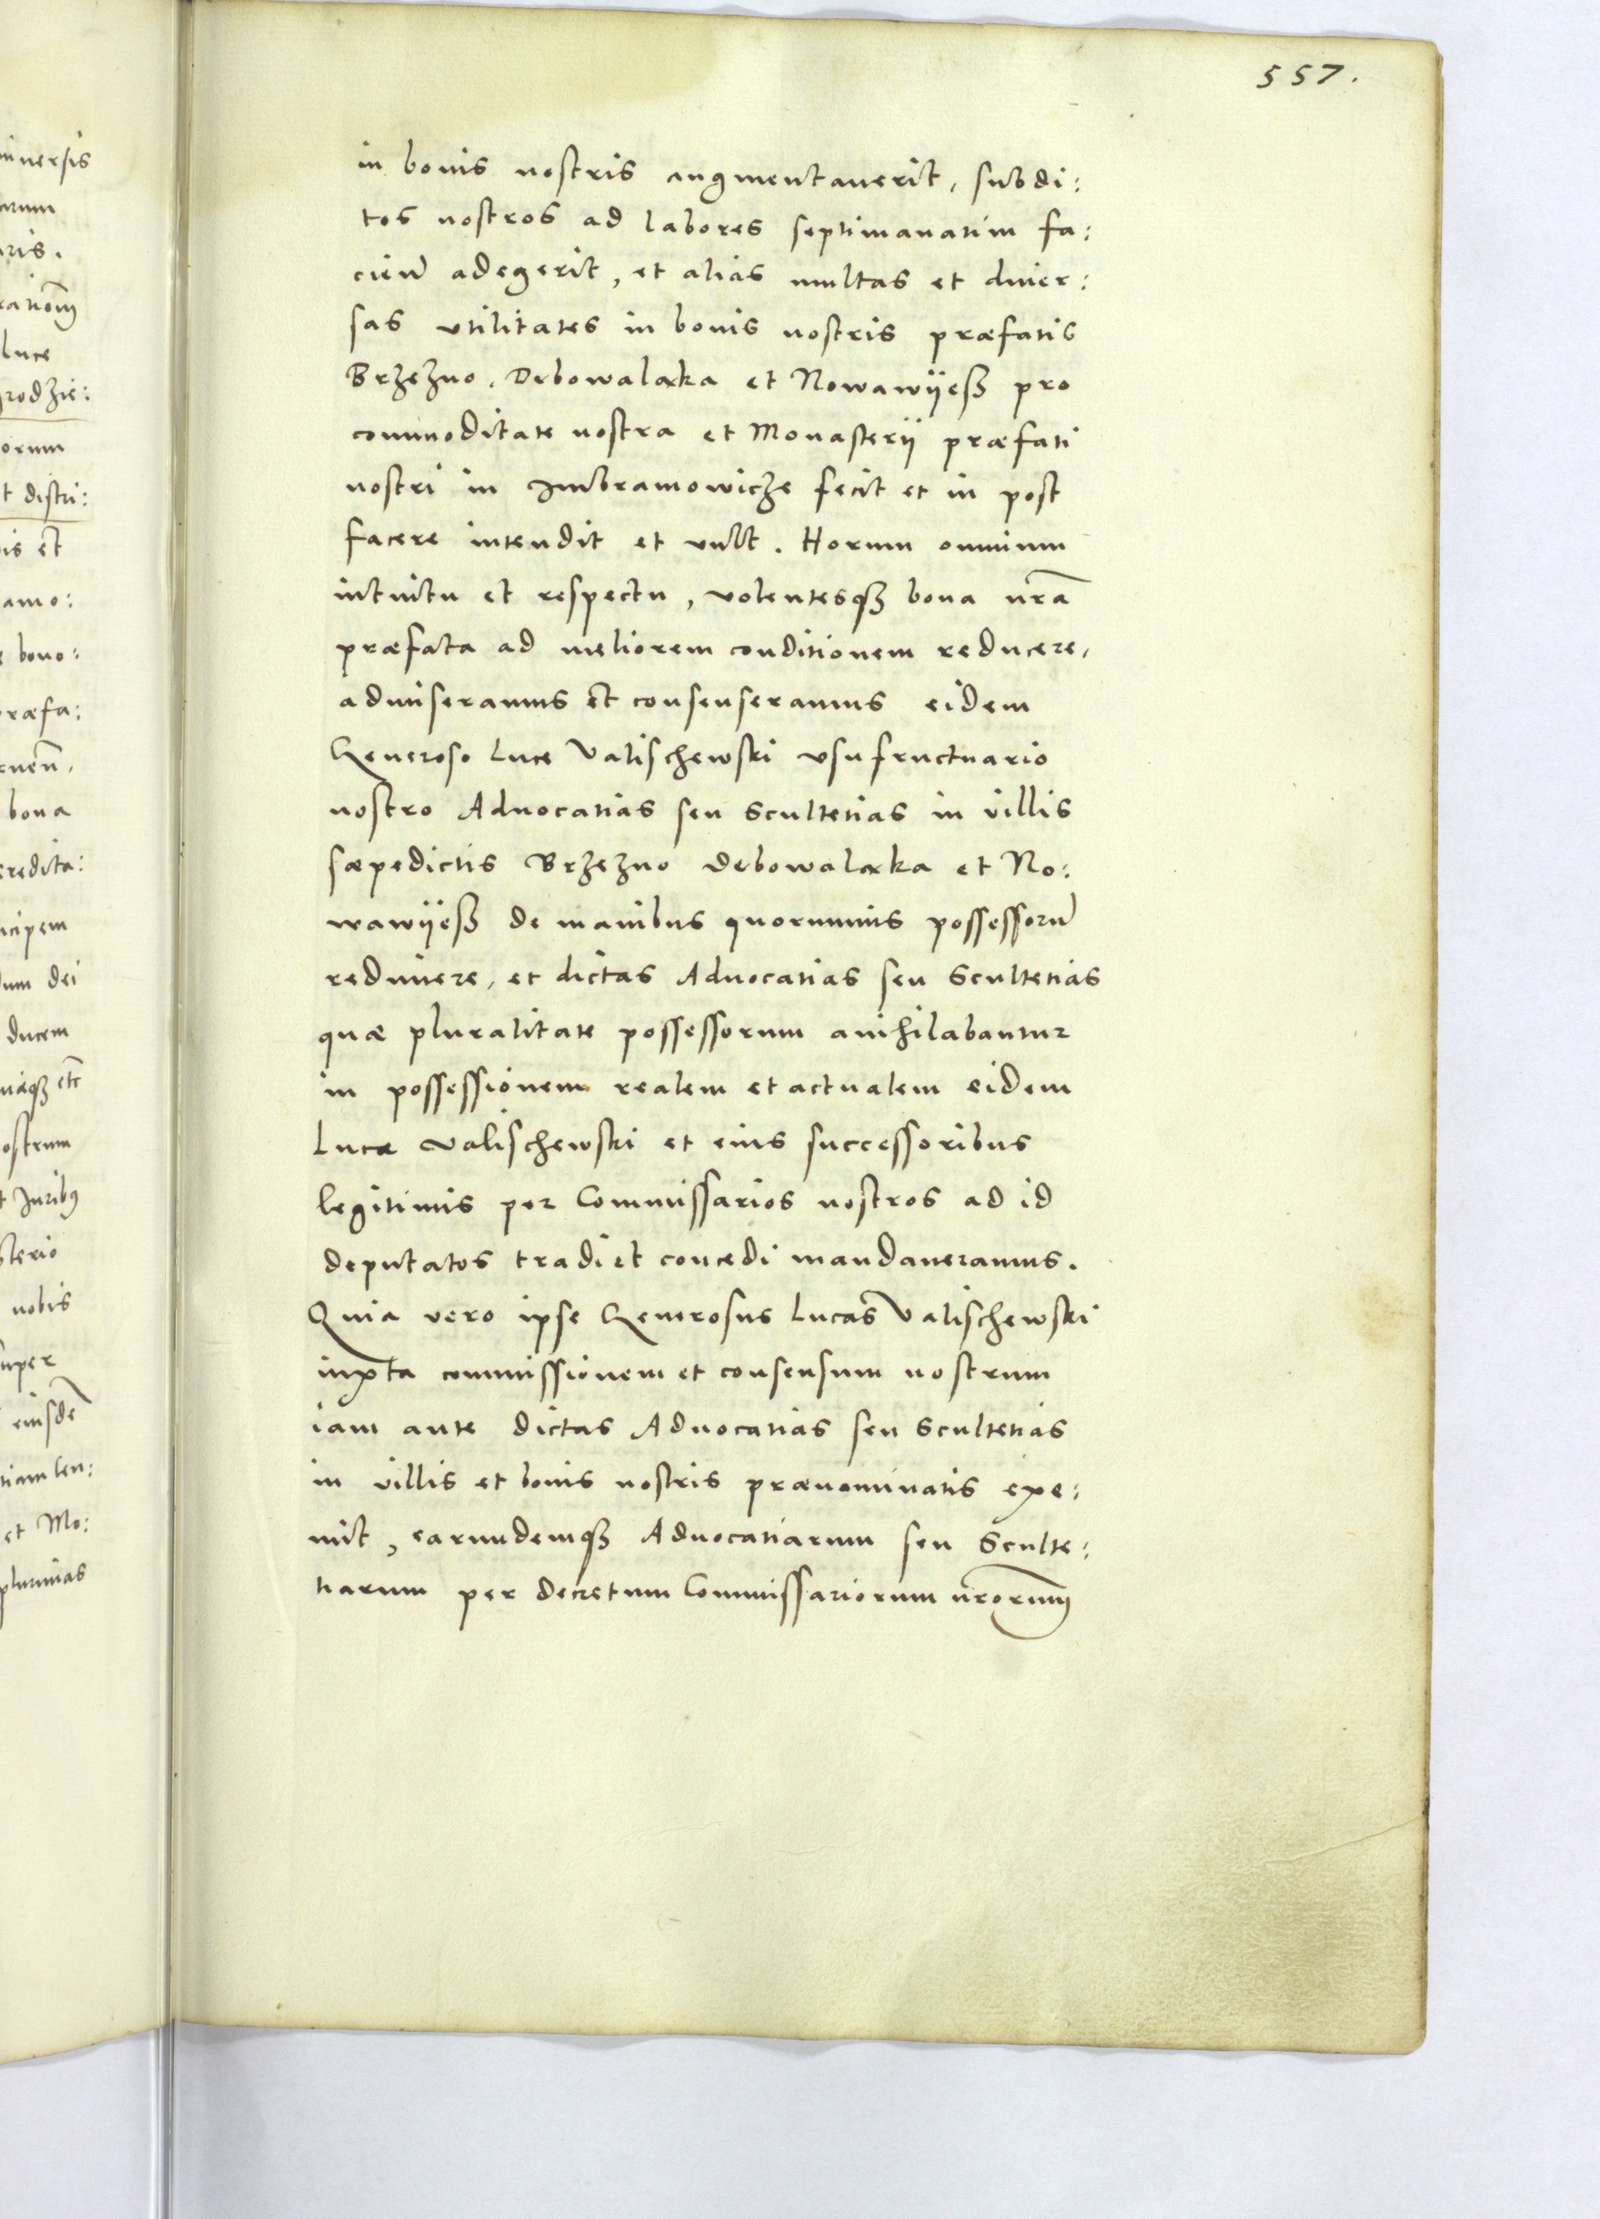 557.
in bonis nostris augmentaverit, subdi:
tos nostros ad labores septimanatim fa:
cien̄ adegerit, et alias multas et diver:
sas vtilitates in bonis nostris præfatis
Brzezno, Debowalaka et Nowawÿesß pro
commoditate nostra et Monasterÿ præfati
nostri in Imbramowicze fecit et in post
facere intendit et vult. Horum omnium
intuitu et respectu, volentesqȝ bona nr̄a
præfata ad meliorem conditionem reducere,
admiseramus et consenseramus eidem
Generoso Luce Valischewski vsufructuario
nostro Aduocatias seu Scultetias in villis
sæpedictis Brzezno Debowalaka et No:
wawÿesß de manibus quorumuis possessorū
redimere, et dictas Aduocatias seu Scultetias
quæ pluralitate possessorum anihilabantur
in possessionem realem et actualem eidem
Lucæ Valischewski et eius successoribus
legitimis per Commissarios nostros ad id
deputatos tradi et concedi mandaueramus.
Quia vero ipse Generosus Lucas Valischewski
iuxta commissionem et consensum nostrum
iam ante dictas Aduocatias seu Scultetias
in villis et bonis nostris prænominatis exe:
mit, earundemqȝ Aduocatiarum seu Sculte:
tiarum per decretum Commissariorum nr̄orum